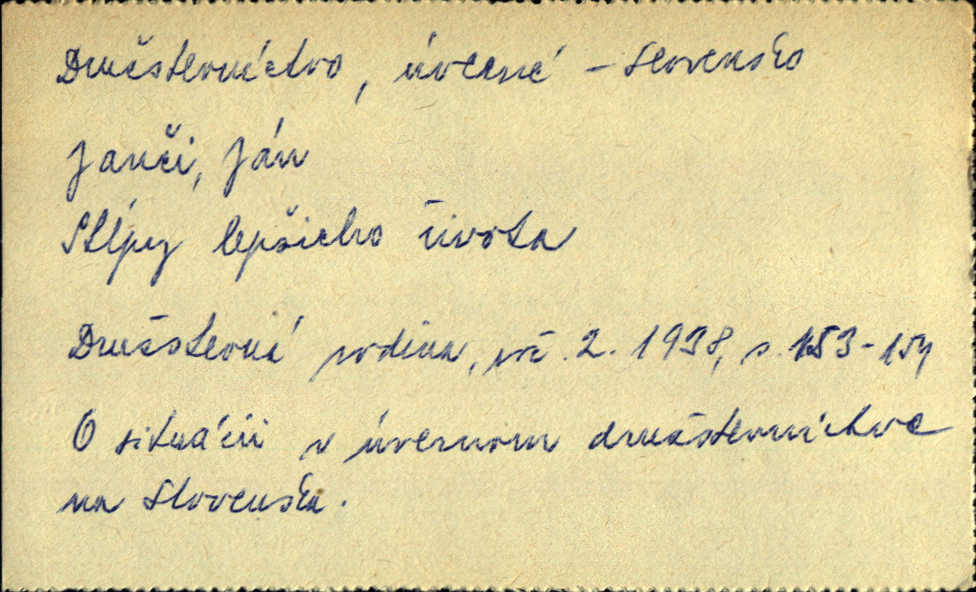 Družstevníctvo, úverné - Slovensko
Janči, Ján
Stĺpy lepšieho života
Družstevná rodina, roč. 2. 1938, s. 153-154
O situácii v úvernom družstevníctve
na Slovensku.